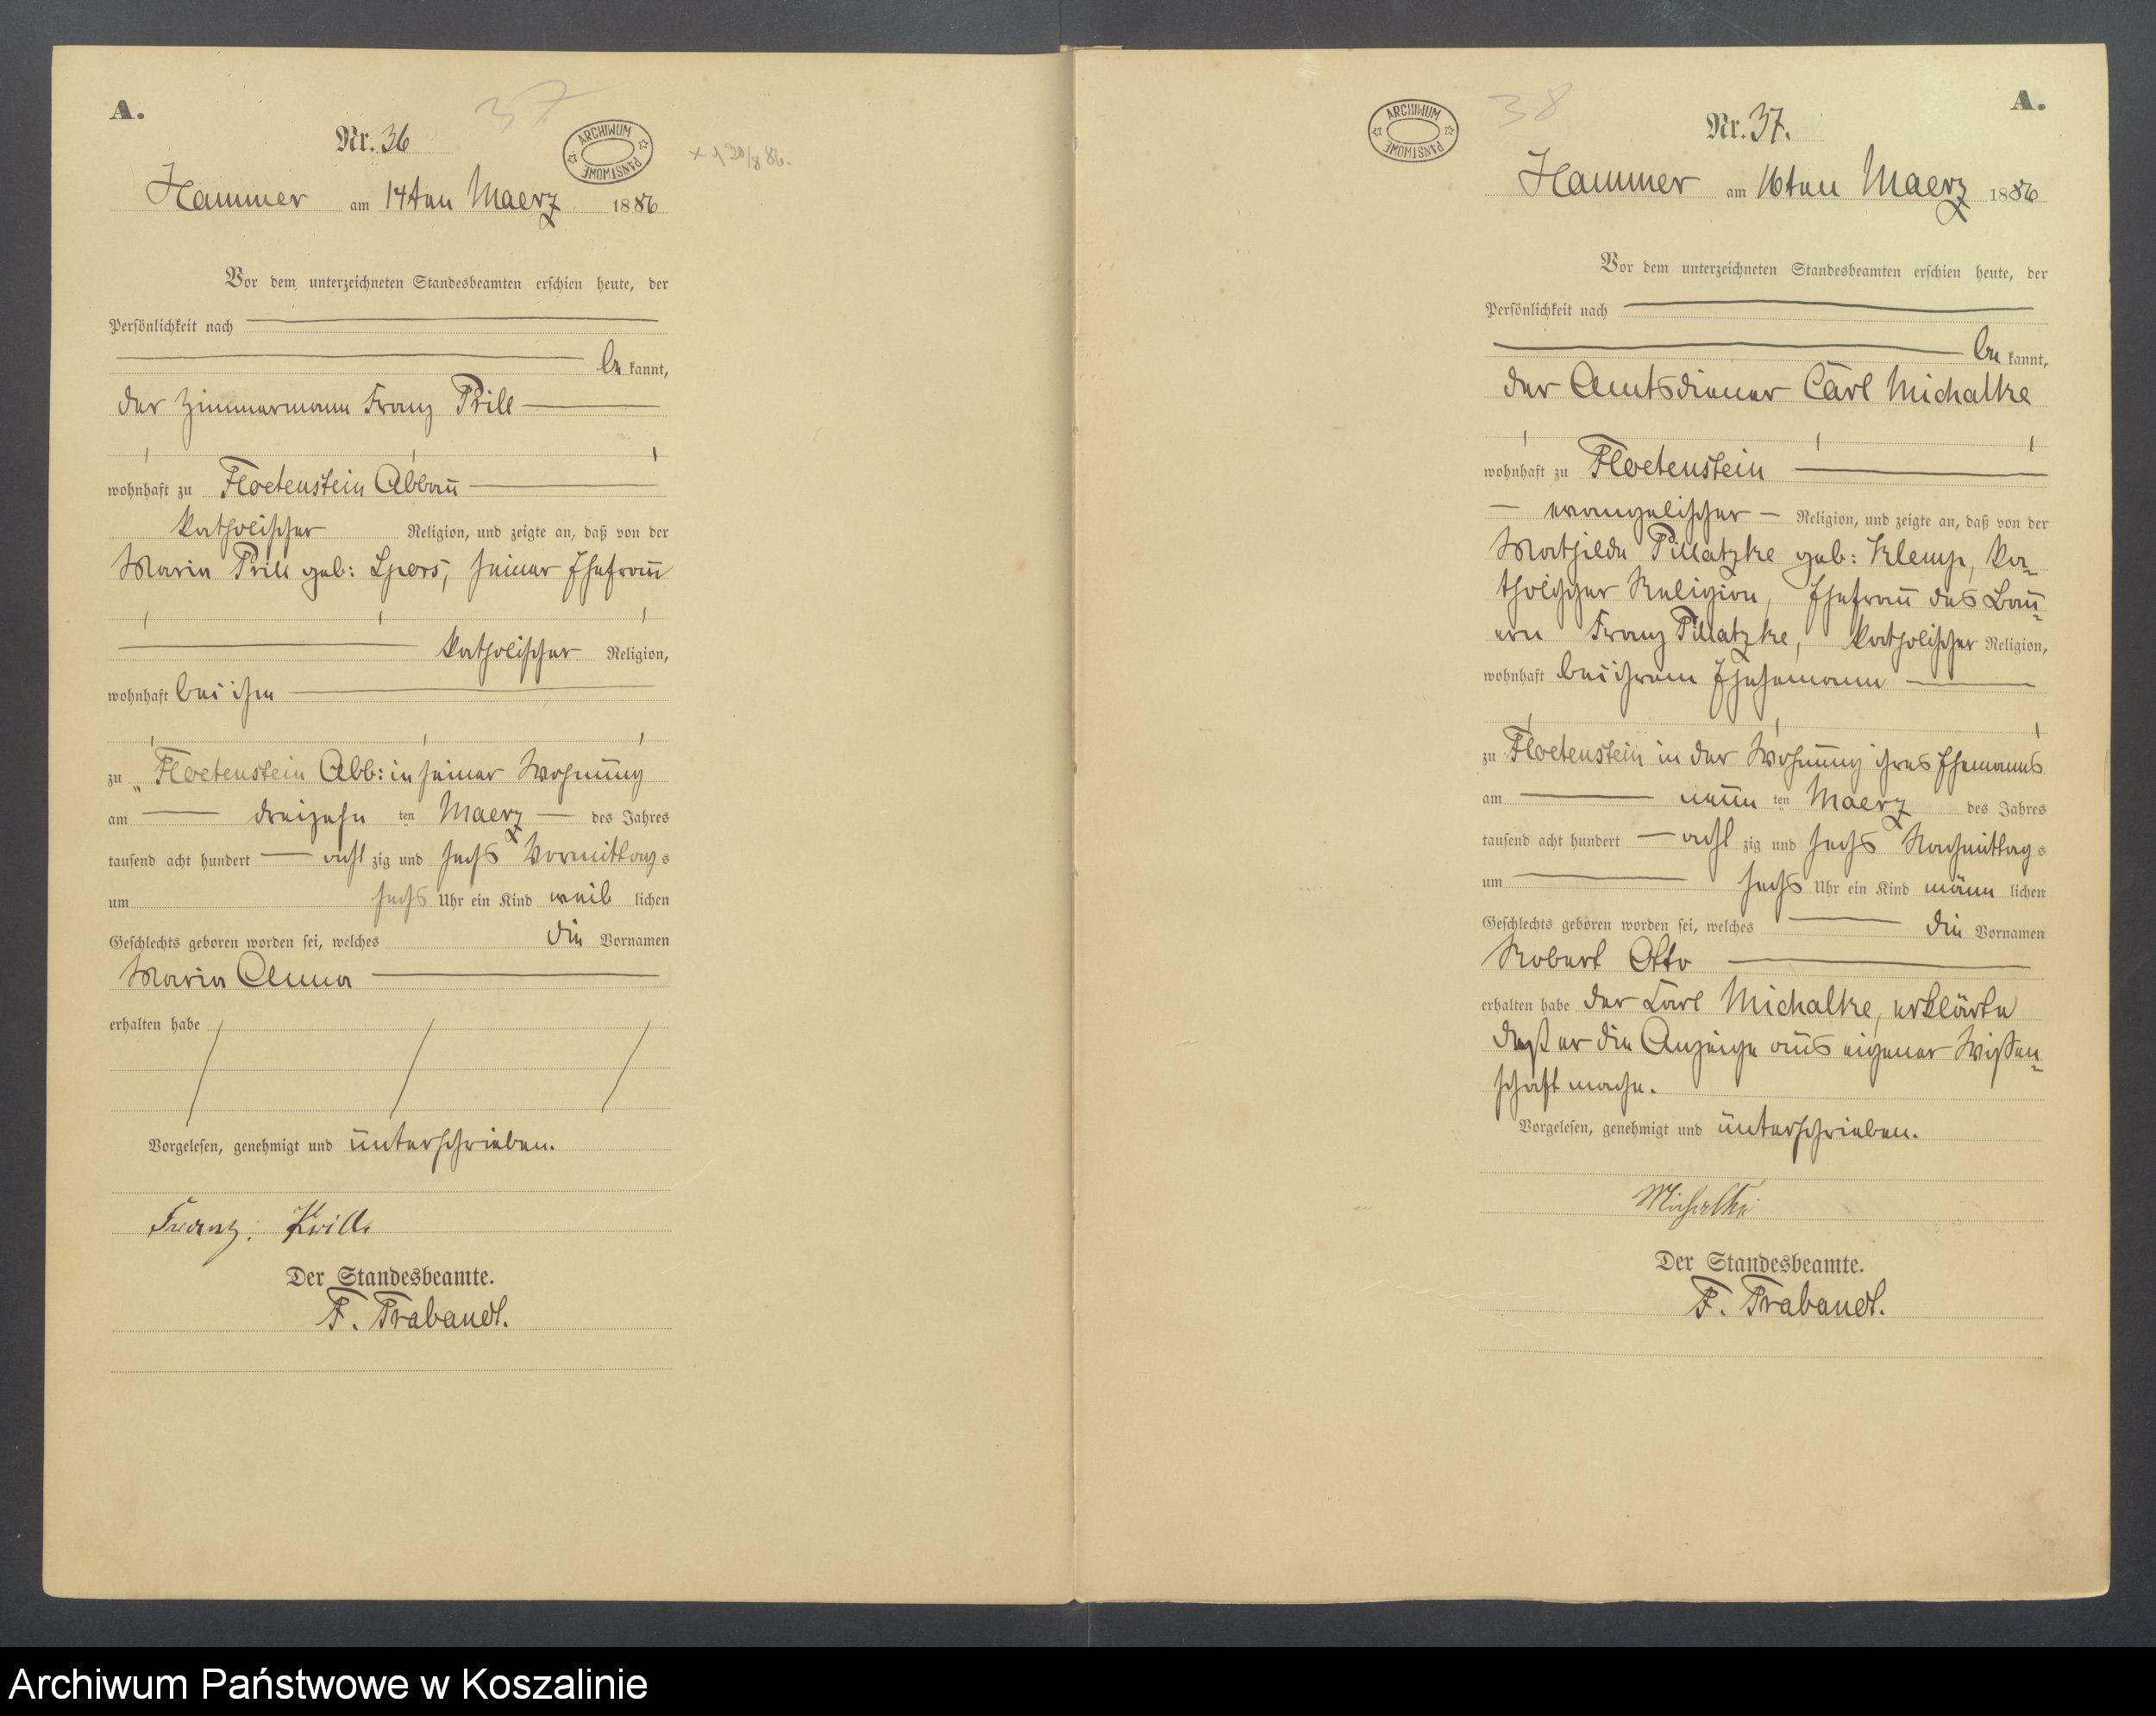 A.
37
Nr. 36
ARCHIWUM PAŃSTWOWE
Hammer am 14ten Maerz 1886
Vor dem unterzeichneten Standesbeamten erschien heute, der
Persönlichkeit nach
be kannt,
der Zimmermann Franz Prill
wohnhaft zu Floetenstein Abbau
katholischer Religion, und zeigte an, daß von der
Maria Prill geb: seiner Ehefrau
katholischer Religion,
wohnhaft bei ihm
zu Floetenstein Abb: in seiner Wohnung
am dreizehn ten Maerz des Jahres
tausend acht hundert acht zig und sechs Vormittags
um sechs Uhr ein Kind weib lichen
Geschlechts geboren worden sei, welches die Vornamen
Maria Anna
erhalten habe
Vorgelesen, genehmigt und unterschrieben.
Franz
Der Standesbeamte.
F. Trabandt.
A.
38
ARCHIWUM PAŃSTWOWE
Nr. 37.
Hammer am 16ten Maerz 1886
Vor dem unterzeichneten Standesbeamten erschien heute, der
Persönlichkeit nach
be kannt,
der Amtsdiener Carl Michalke
wohnhaft zu Floetenstein
evangelischer Religion, und zeigte an, daß von der
Mathilde Pillatzke geb: Klemp, ka=
tholischer Religion, Ehefrau des Bau=
ern Franz Pillatzke, katholischer Religion,
wohnhaft bei ihrem Ehehemann
zu Floetenstein in der Wohnung ihres Ehemannes
am neun ten Maerz des Jahres
tausend acht hundert acht zig und sechs Nachmittags
um sechs Uhr ein Kind männ lichen
Geschlechts geboren worden sei, welches die Vornamen
Robert Otto
erhalten habe der Carl Michalke, erklärte
daß er die Anzeige aus eigener Wissen=
schaft mache.
Vorgelesen, genehmigt und unterschrieben.
Michalke
Der Standesbeamte.
F. Trabandt.
Archiwum Państwowe w Koszalinie